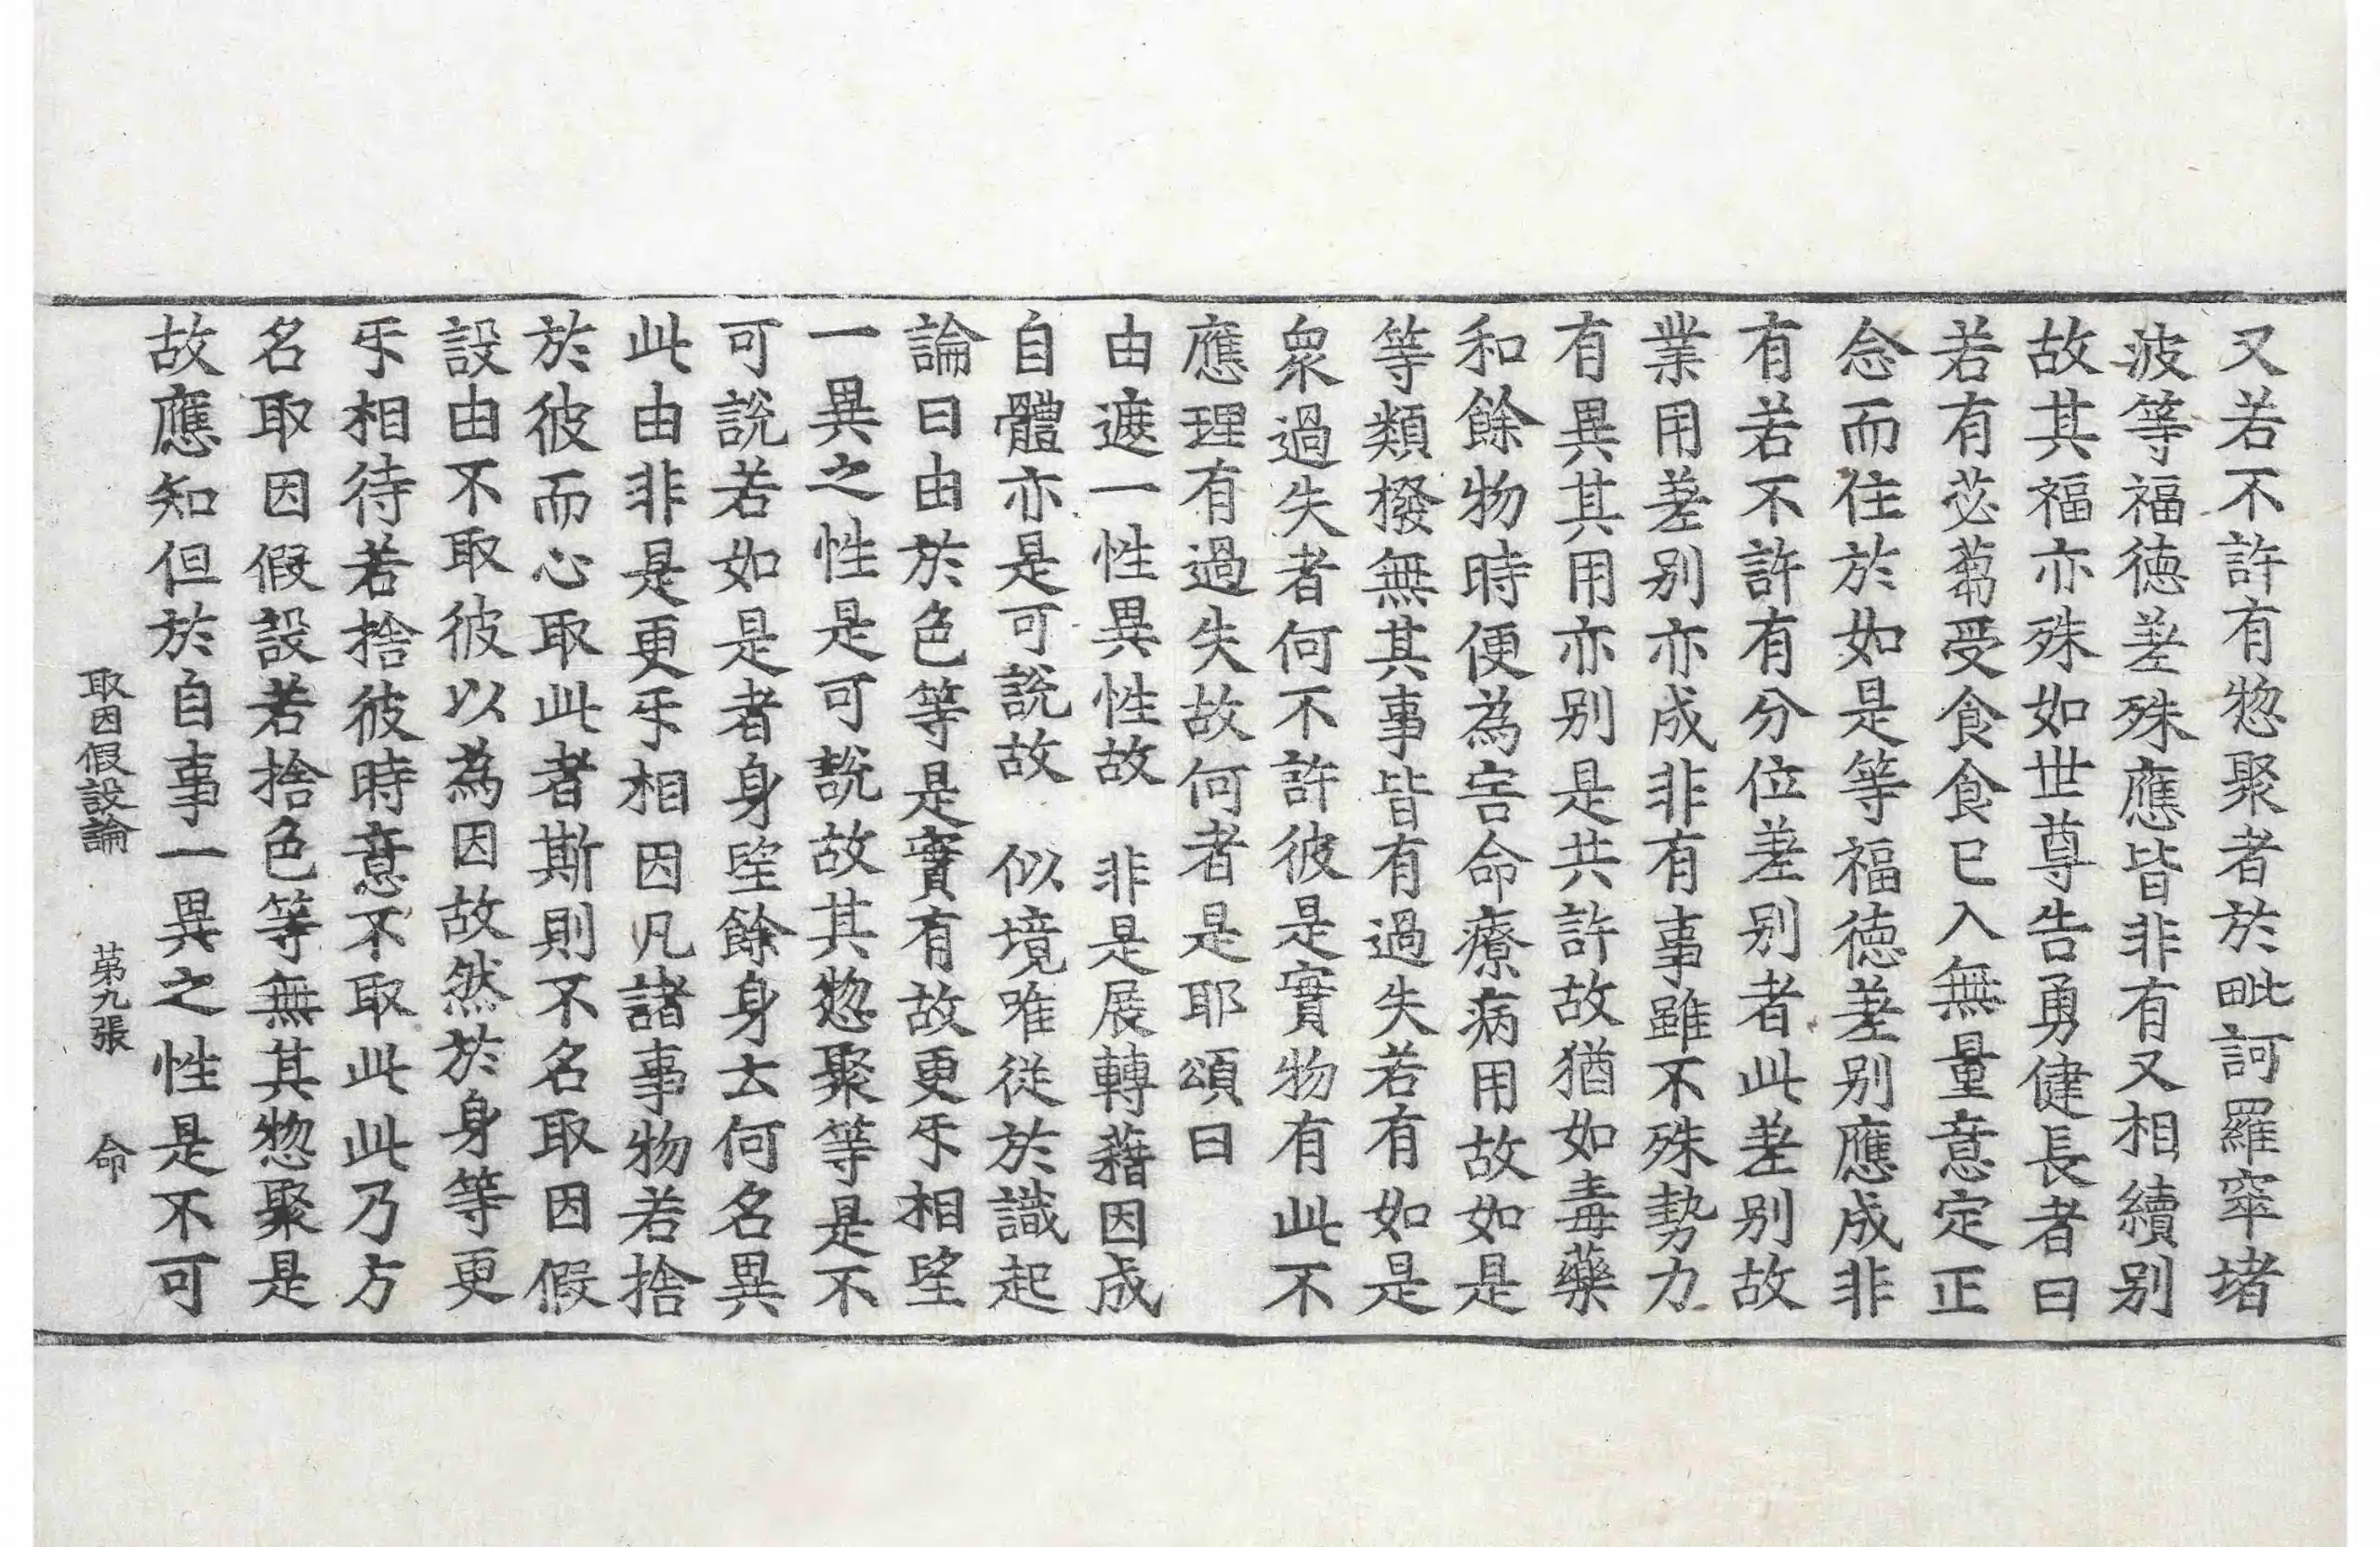 又若不許有惣聚者於毗訶羅窣堵
波等福徳差殊應皆非有又相續别
故其福亦殊如世尊告勇健長者曰
若有苾蒭受食食已入無量意定正
念而住於如是等福徳差别應成非
有若不許有分位差别者此差别故
業用差别亦成非有事雖不殊勢力
有異其用亦别是共許故猶如毒藥
和餘物時便為害命療病用故如是
等類撥無其事皆有過失若有如是
衆過失者何不許彼是實物有此不
應理有過失故何者是耶頌曰
由遮一性異性故　非是展轉藉因成
自體亦是可說故　似境唯從於識起
論曰由於色等是實有故更㸦相望
一異之性是可說故其惣聚等是不
可說若如是者身望餘身去何名異
此由非是更㸦相因凡諸事物若捨
於彼而心取此者斯則不名取因假
設由不取彼以為因故然於身等更
㸦相待若捨彼時意不取此此乃方
名取因假設若捨色等無其惣聚是
故應知但於自事一異之性是不可
取因假設論　第九張　命